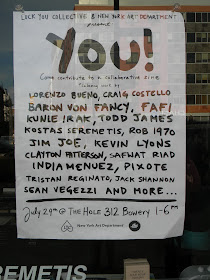 LUCK YOU COLLECTIVE & NEW YORK ART DEPARTMENT
present
YOU!
Come contribute to a collaborative zine
featuring work by
LORENZO BUENO, CRAIG COSTELLO
BARON VON FANCY, FAFI
KUNLE IRAK, TODD JAMES
KOSTAS SEREMETIS, ROB 1970
JIM JOE, KEVIN LYONS
CLAYTON PATTERSON, SAFWAT RIAD
INDIA MENUEZ, PIXOTE
TRISTAN REGINATO, JACK SHANNON
SEAN VEGEZZI AND MORE...
July 29th @ The Hole 312 Bowery 1-6pm
New York Art Department
REMETIS